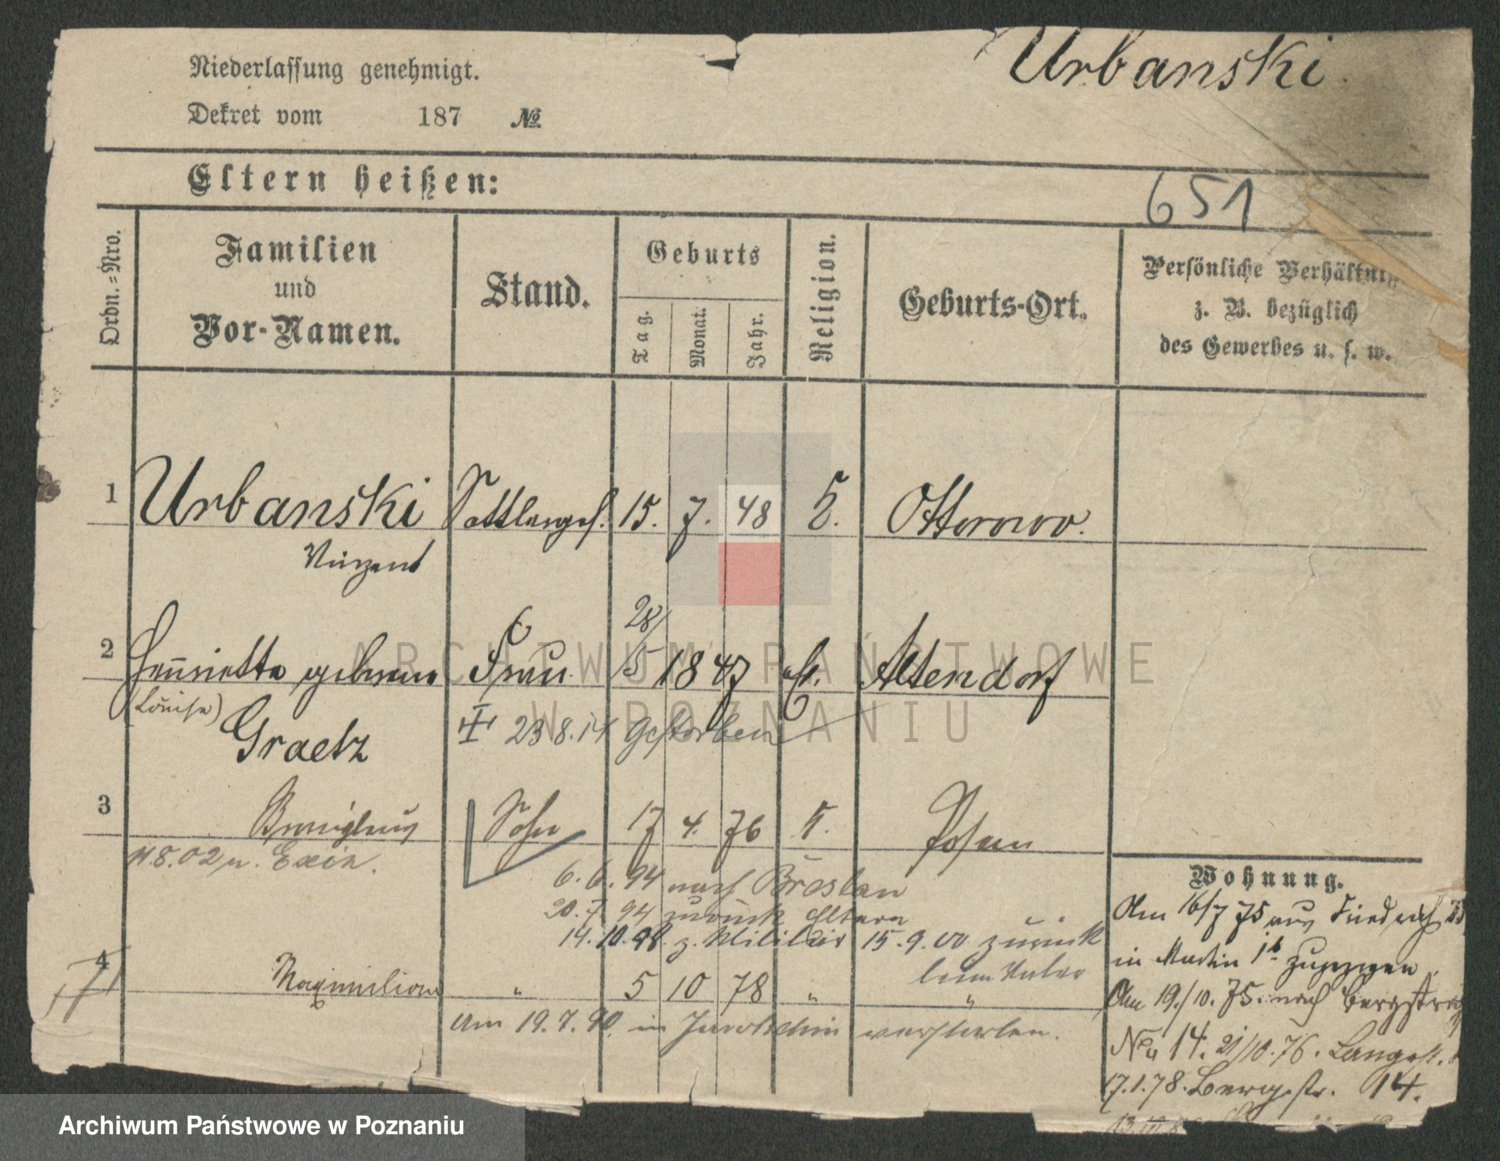 Urbanski
Niederlassung genehmigt.
Dekret vom 187 №
Eltern heißen:
651
Ordn.=Nro.
Familien
und
Vor-Namen.
Stand.
Geburts
Tag.
Monat.
Jahr.
Religion.
Geburts-Ort.
Persönliche Verhältni
z. B. bezüglich
des Gewerbes u. s. w.
1 Urbanski Sattlerges. 15. 7. 48 Ottorowo.
Vinzent
28/
2 Henriette geborene Frau 5 1847 Altendorf
(Louise)
Graetz
23 8. 14 gestorben
3 Sohn 17 4. 76 k. Posen
11.8.02 n. Exin.
6. 6. 94 nach Breslau
20. 7. 94 zurück Eltern
14. 10. 98. z. Militär 15. 9. 00 zurück
beim Vater
4 Maximilian " 5 10 78 " "
Am 19. 7. 90. in Jarotschin verstorben.
Wohnung.
Am 16/7 75 aus Friedrich
in Martin 16 zugezogen
Am 19./10. 75. nach Bergstra
No 14. 21/10. 76. Langest.
17.1.78. Bergstr. 14.
ARCHIWUM PAŃSTWOWE
W POZNANIU
Archiwum Państwowe w Poznaniu